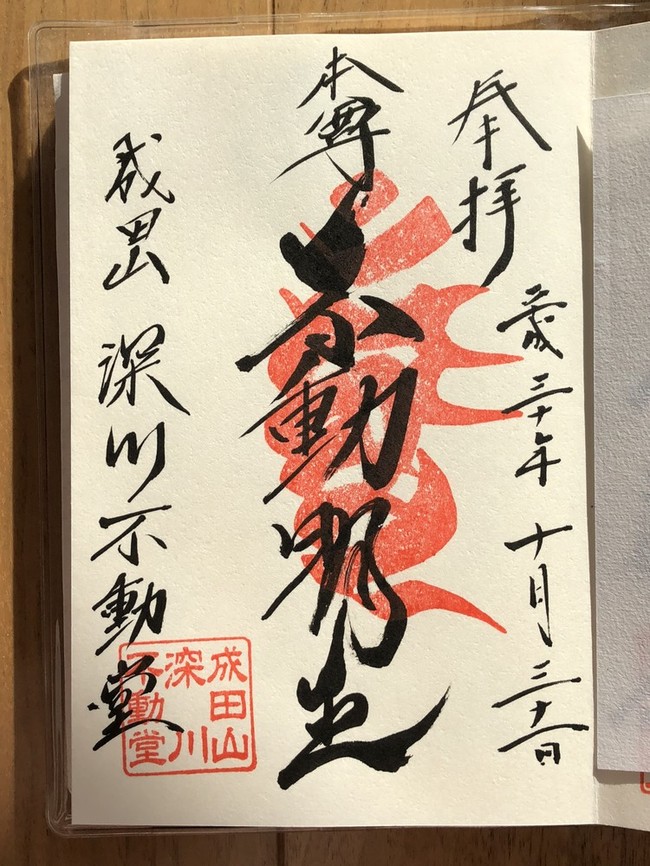 奉拝
平成三十年 十月三十一日
本尊 不動明王
成田山 深川不動堂
成田山
深川
不動堂